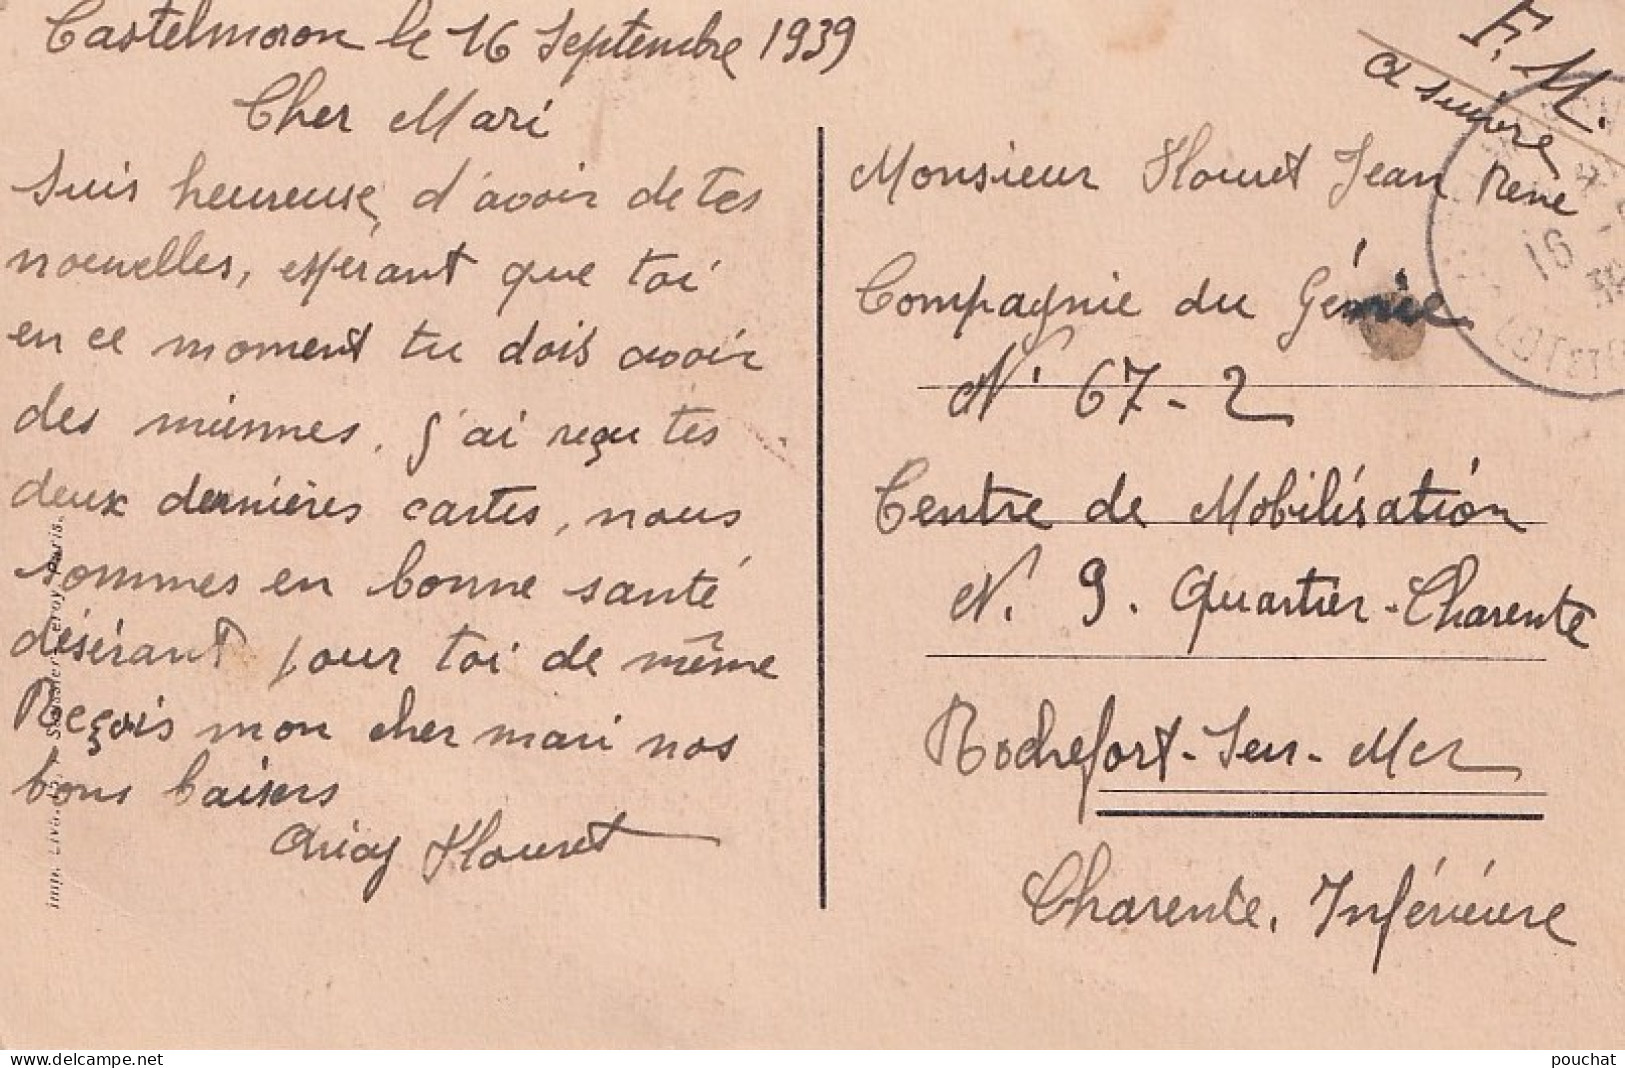 Castelmoron le 16 Septembre 1939
Cher Mari
Suis heureuse, d'avoir de tes
nouvelles, espérant que toi
en ce moment tu dois avoir
des miennes. J'ai reçu tes
deux dernières cartes, nous
sommes en bonne santé
désirant pour toi de même
Reçois mon cher mari nos
bons baisers
F. M.
à suivre
Monsieur Jean René
Compagnie du Génie
N. 67-2
Centre de Mobilisation
N. 9. Quartier-Charente
Rochefort-Sur-Mer
Charente. Inférieure
16
LOT-ET-
Paris.
www.delcampe.net
pouchat